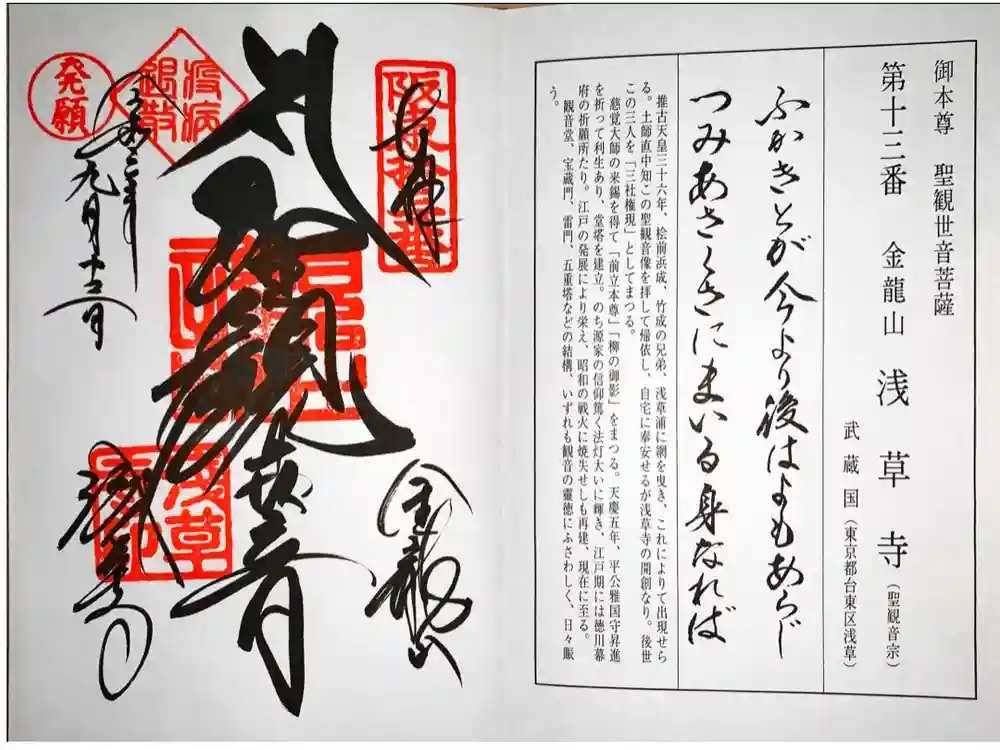 御本尊 聖観世音菩薩
第十三番 金龍山 浅草寺（聖観音宗）
武蔵国（東京都台東区浅草）
ふかきとが今より後はよもあらじ
つみあさくさにまいる身なれば
推古天皇三十六年、桧前浜成、竹成の兄弟、浅草浦に網を曳き、これによりて出現せら
る。土師直中知この聖観音像を拝して帰依し、自宅に奉安せるが浅草寺の開創なり。後世
この三人を「三社権現」としてまつる。
慈覚大師の来錫を得て「前立本尊」「柳の御影」をまつる。天慶五年、平公雅国守昇進
を祈って利生あり、堂塔を建立。のち源家の信仰篤く法灯大いに輝き、江戸期には徳川幕
府の祈願所たり。江戸の発展により栄え、昭和の戦火に焼失せしも再建、現在に至る。
観音堂、宝蔵門、雷門、五重塔などの結構、いずれも観音の霊徳にふさわしく、日々賑
う。
奉拝
金龍山
疫病
退散
発願
九月十二日
浅草寺
浅草